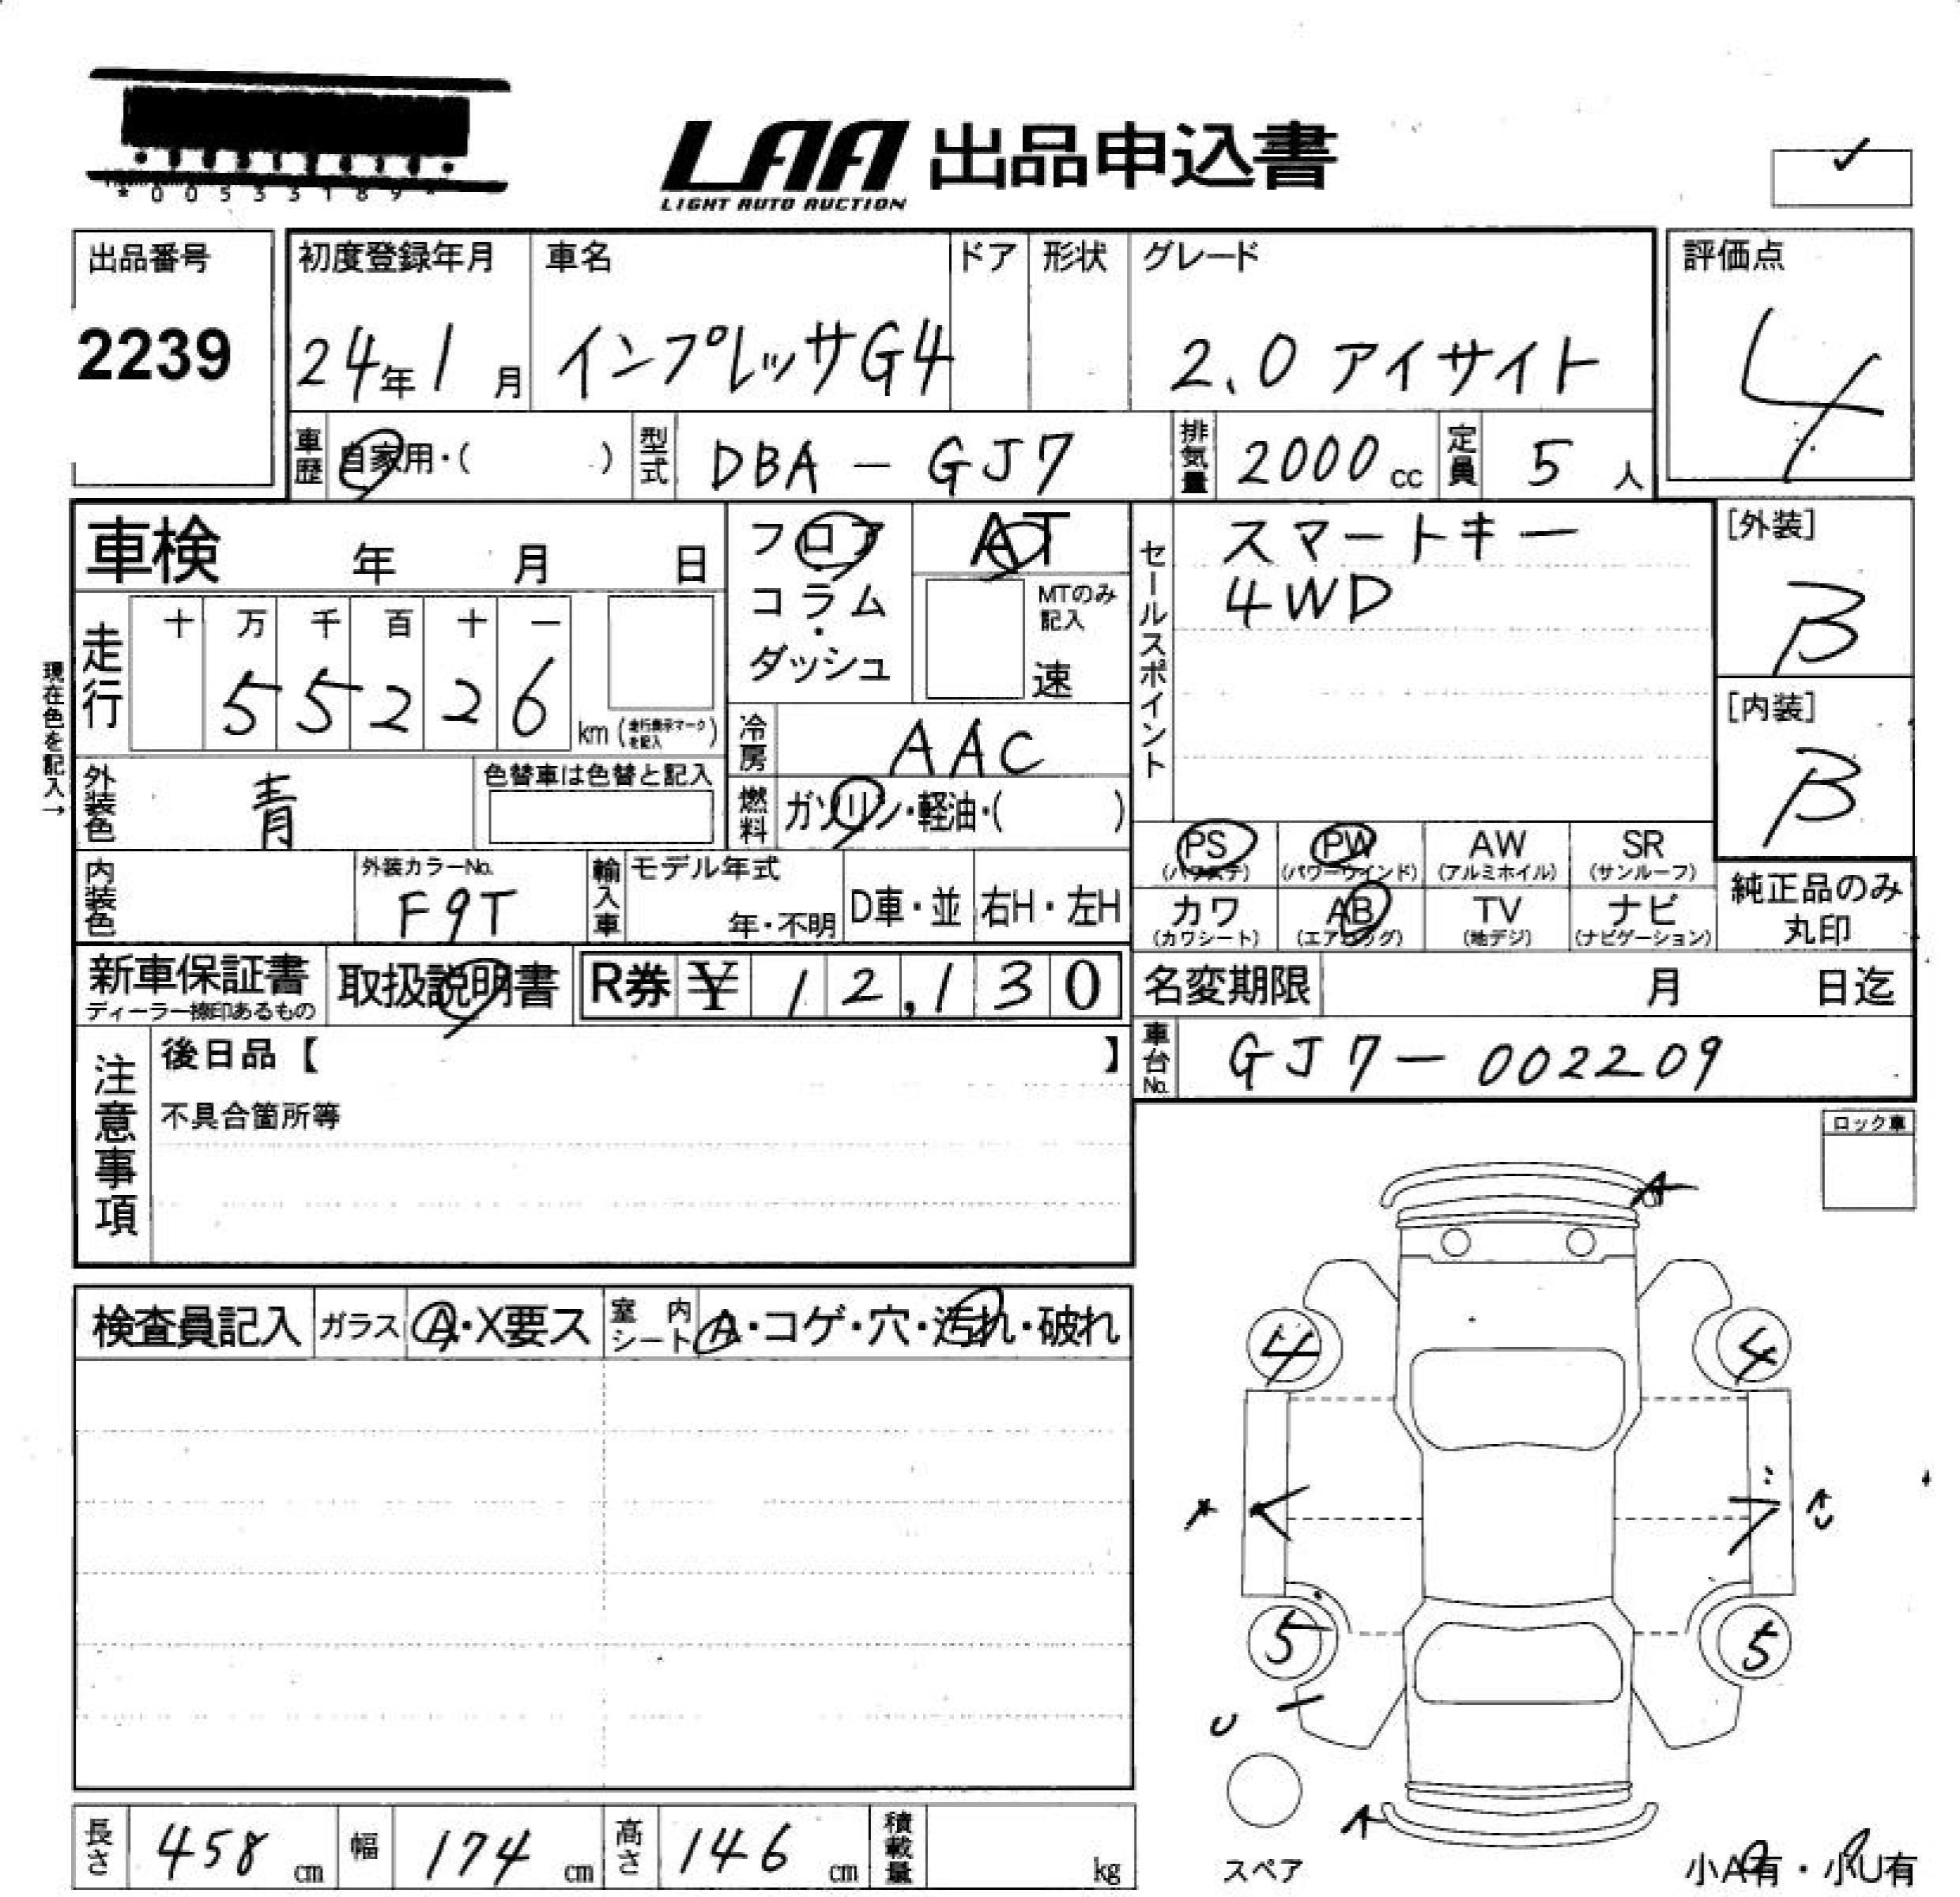 *00535189*
LAA 出品申込書
LIGHT AUTO AUCTION
出品番号
2239
初度登録年月
24年1月
車名
インプレッサG4
ドア
形状
グレード
2.0 アイサイト
評価点
4
車歴
自家用・( )
型式
DBA-GJ7
排気量
2000cc
定員
5人
車検 年 月 日
走行
十 万 千 百 十 一
5 5 2 2 6
km (走行表示マークを記入)
現在色を記入→
外装色
青
色替車は色替と記入
フロア
コラム
・
ダッシュ
AT
MTのみ
記入
速
冷房
AAC
燃料
ガソリン・軽油・( )
セールスポイント
スマートキー
4WD
[外装]
B
[内装]
B
PS
(パワステ)
PW
(パワーウインド)
AW
(アルミホイル)
SR
(サンルーフ)
カワ
(カワシート)
AB
(エアバッグ)
TV
(地デジ)
ナビ
(ナビゲーション)
純正品のみ
丸印
内装色
外装カラーNo.
F9T
輸入車
モデル年式
年・不明
D車・並
右H・左H
新車保証書
ディーラー捺印あるもの
取扱説明書
R券 ¥ 12,130
名変期限 月 日迄
車台No.
GJ7-002209
注意事項
後日品【 】
不具合箇所等
ロック車
検査員記入
ガラス
A・X要ス
室内シート
A・コゲ・穴・汚れ・破れ
A
4
4
A
U
5
5
U
A
スペア
小A有・小U有
長さ
458cm
幅
174cm
高さ
146cm
積載量
kg